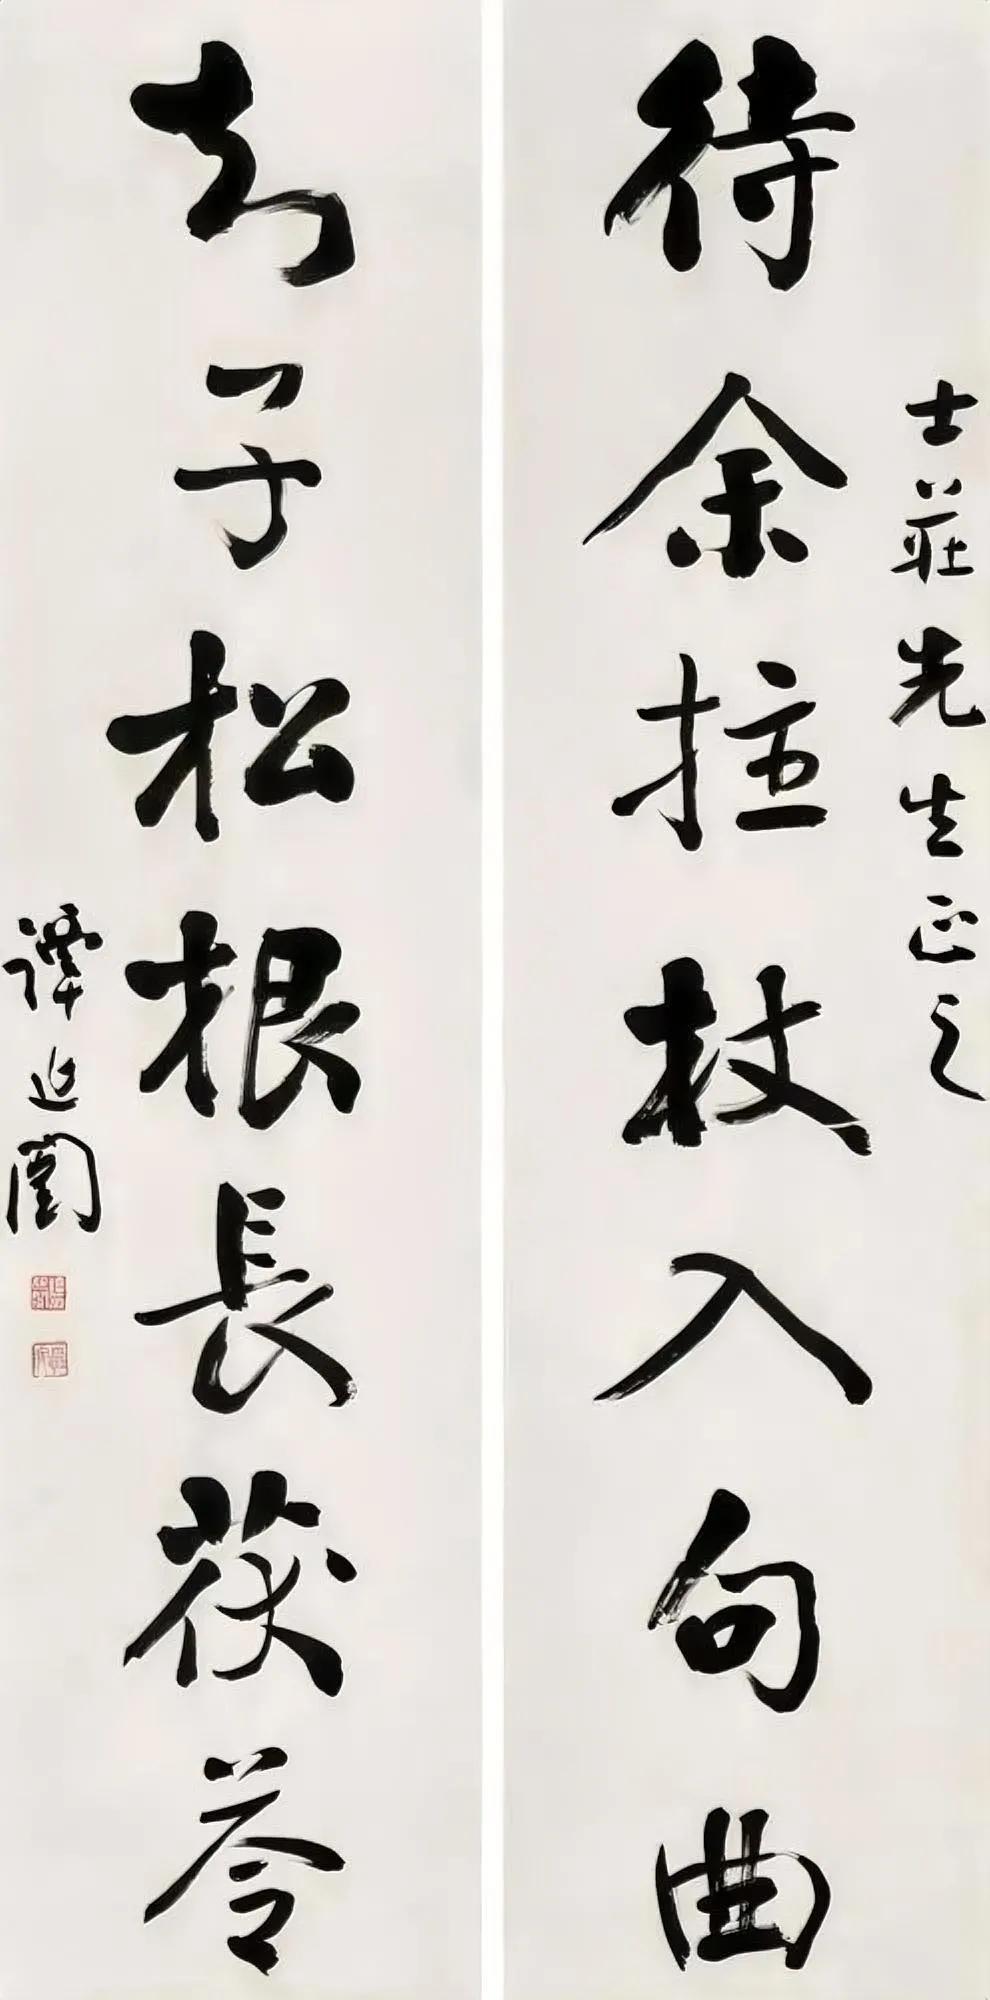 士莊先生正之
待余拄杖入句曲
知子松根長茯苓
譚延闓